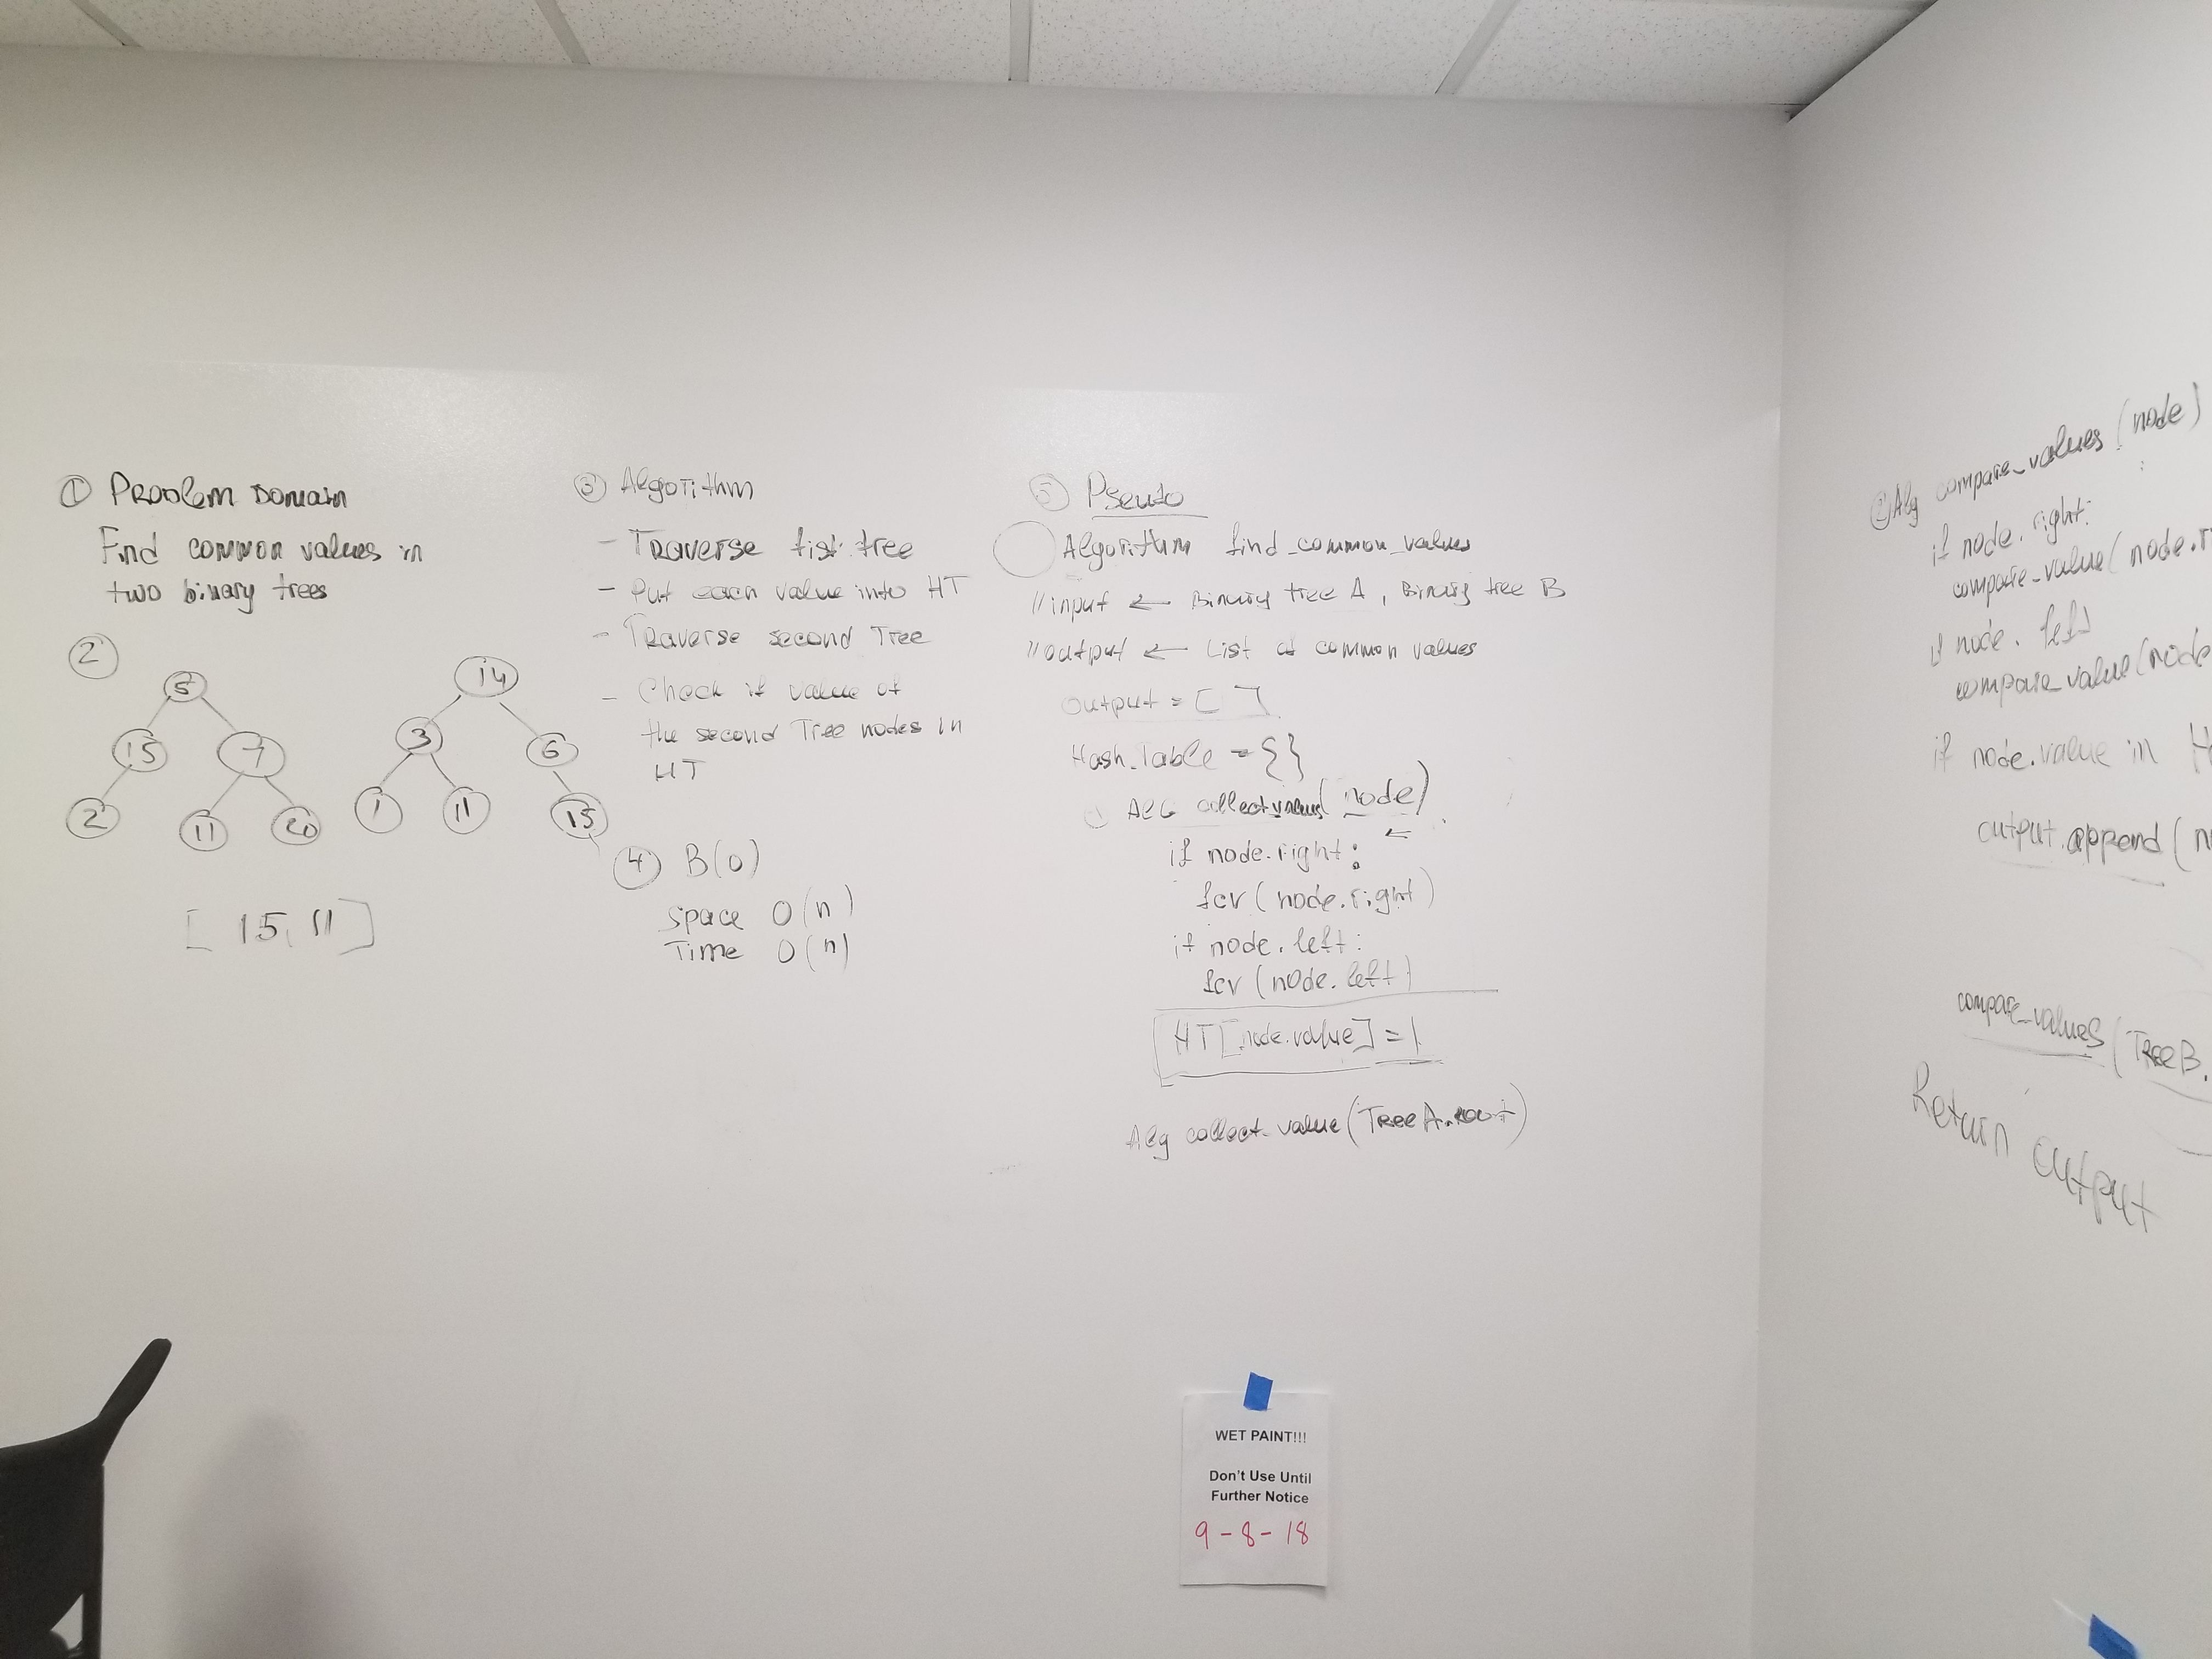 ① Problem Domain
Find common values in
two binary trees
②
5
15 7
2 11 20
14
3 6
1 11 15
[15, 11]
③ Algorithm
- Traverse fist tree
- Put each value into HT
- Traverse second Tree
- Check if value of
the second Tree nodes in
HT
④ B(0)
Space O(n)
Time O(n)
⑤ Pseudo
Algorithm find_common_values
// input ← Binary tree A, Binary tree B
// output ← List of common values
output = [ ]
Hash_Table = { }
① Alg collect values (node)
if node.right:
fcv (node.right)
if node.left:
fcv (node.left)
HT[node.value] = 1
Alg collect_value (Tree A.root)
② Alg compare_values (node)
if node.right:
compare_value (node.r
if node.left
compare_value (node
if node.value in H
output.append (n
compare_values (Tree B.
Return output
WET PAINT!!!
Don't Use Until
Further Notice
9-8-18